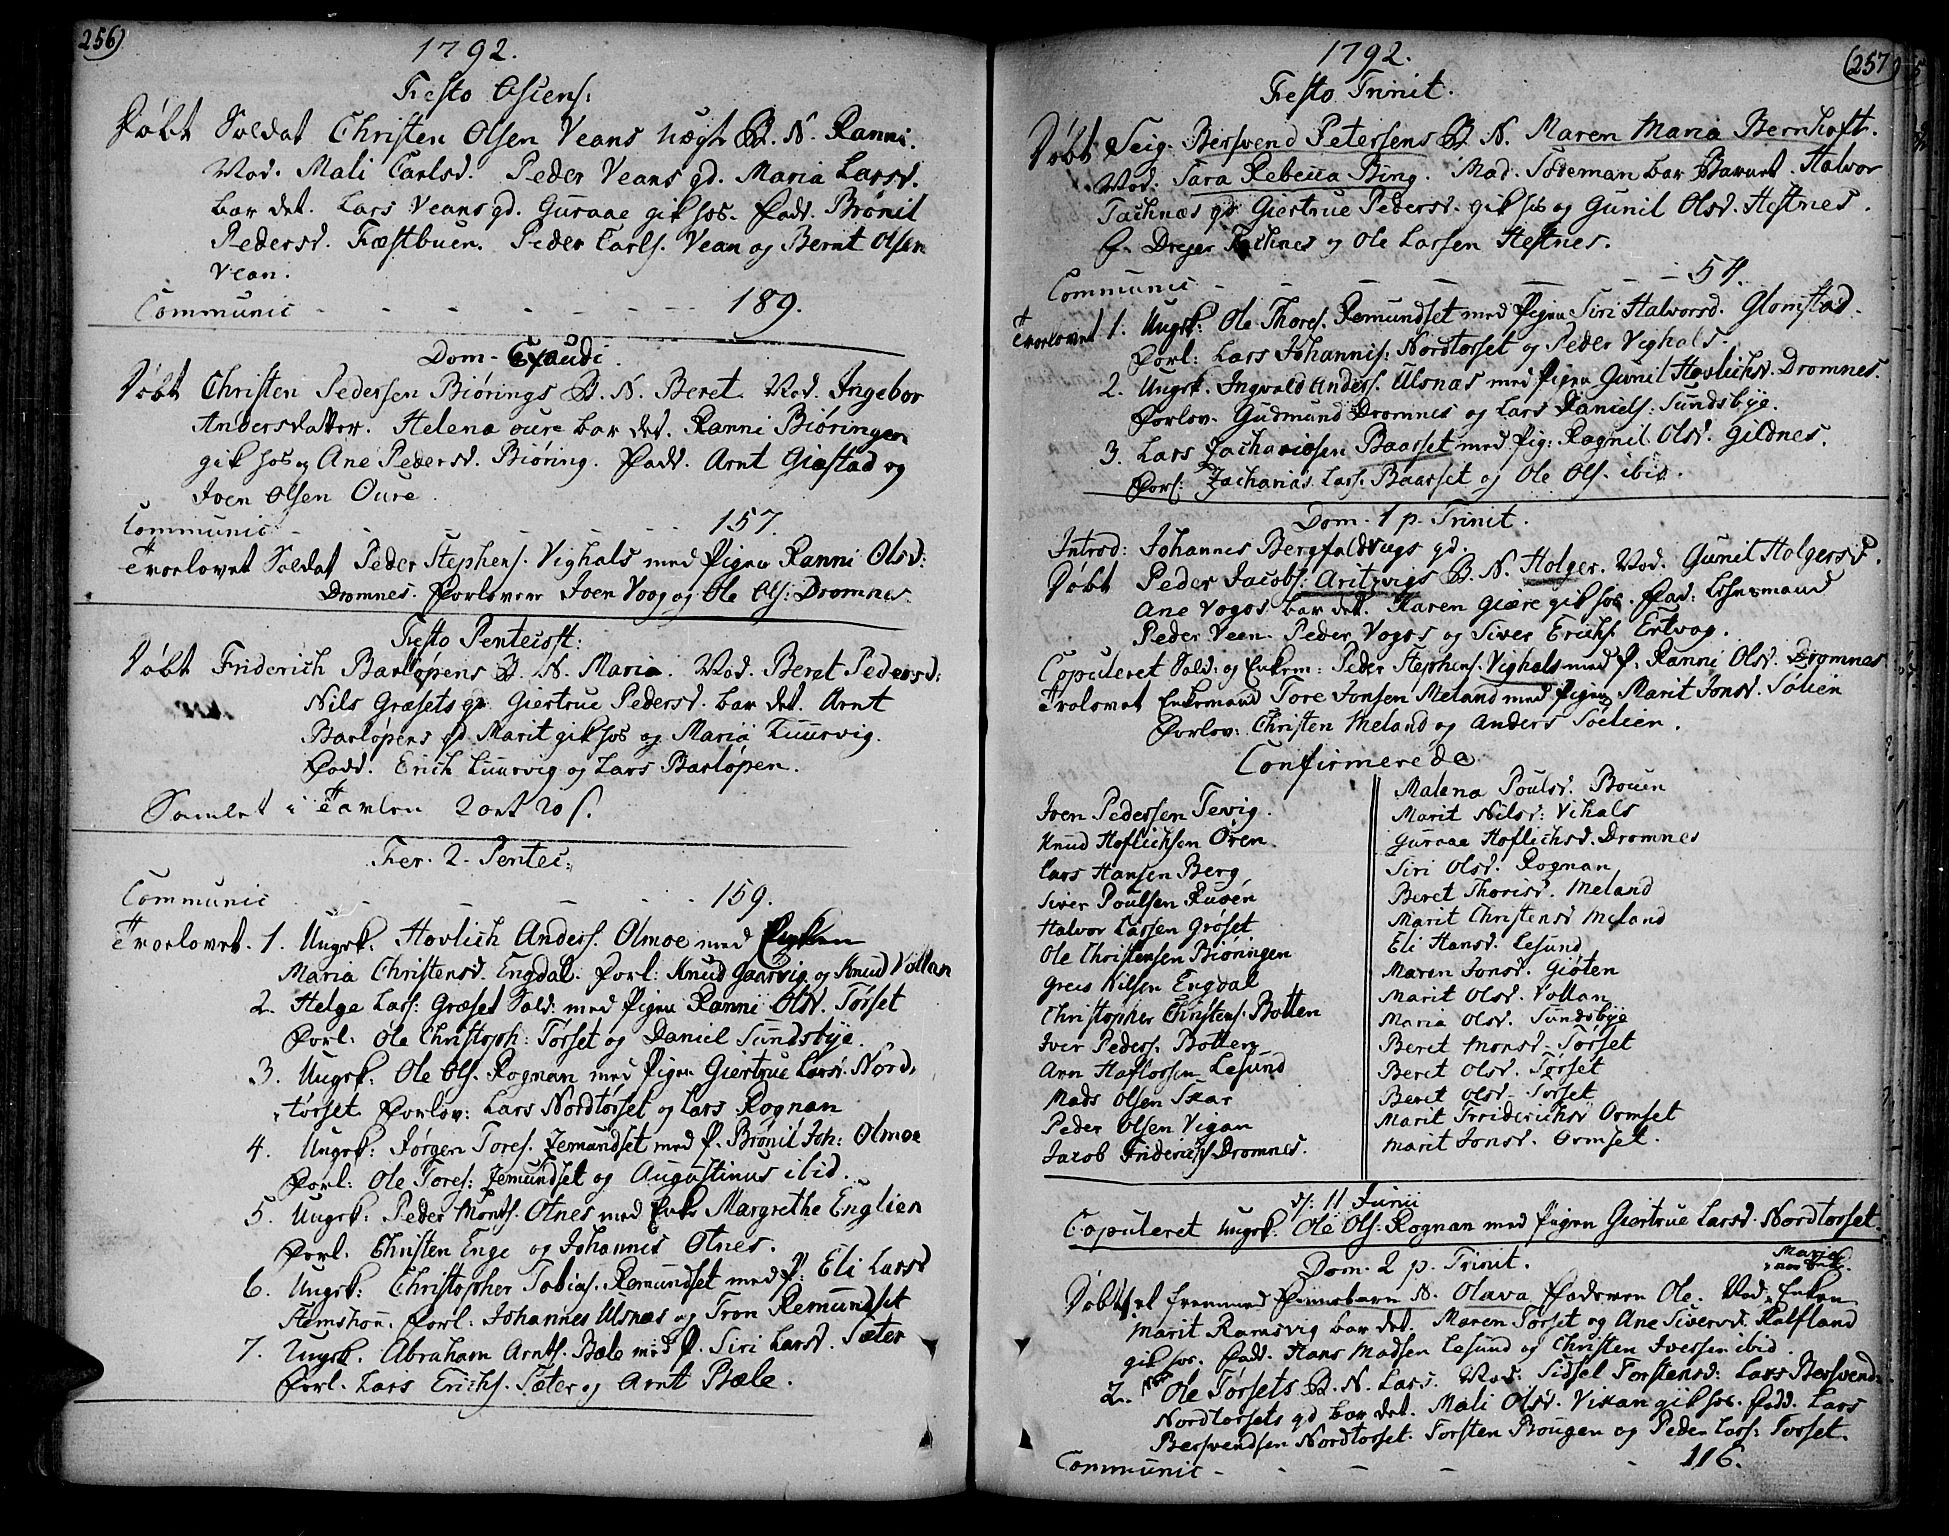 256)
1792.
Festo Ascens:
Døbt Soldat Christen Olsen Veans uægt B. N. Ranni.
Mod. Mali Carlsd. Peder Veans qd. Maria Larsd.
bar det. Lars Veans qd. Guraae gik hos. Fadd. Brønil
Pedersd. Fæstbuen. Peder Carls. Vean og Bernt Olsen
Vean.
Communic - - - - - - 189.
Dom. Exaudi.
Døbt Christen Pedersen Biørings B. N. Beret. Mod. Ingebor
Andersdatter. Helena oure bar det. Ranni Biøringen
gik hos og Ane Pedersd. Biøring. Fadd. Arnt Giæstad og
Joen Olsen Oure.
Communic - - - - - - 157.
Trorlovet Soldat Peder Stephens. Vighals med Pigen Ranni Olsd:
Dromnes. Forlovere Joen Voog og Ole Ols: Dromnes.
Festo Pentecost:
Døbt Friderich Barløpens B. N. Maria. Mod. Beret Pedersd:
Nils Græsets qd. Giertrue Pedersd. bar det. Arnt
Barløpens qd Marit gik hos og Maria Kuurvig.
Fadd. Erich Kuurvig og Lars Barløpen.
Samlet i Tavlen 2 ort 20 s.
Fer. 2. Pentec:
Communic - - - - - 159.
Trorlovet. 1. Ungk. Hovlich Anders. Olmoe med Pigen
Maria Christensd. Engdal. Forl: Knud Gaarvig og Knud Vollan
2. Helge Lars: Græset Sold: med Pigen Ranni Olsd. Torset
Forl: Ole Christoph: Torset og Daniel Sundsbye.
3. Ungk: Ole Ols. Rognan med Pigen Giertrue Larsd. Nord-
torset. Forlov: Lars Nordtorset og Lars Rognan
4. Ungk: Jørgen Tores. Remundset med P. Brønil Joh: Olmoe
Forl: Ole Tores: Remundset og Augustinus ibid.
5. Ungk: Peder Monts. Otnes med Enke Margrethe Englien
Forl. Christen Enge og Johannes Otnes.
6. Ungk: Christopher Tobias. Remundset med P: Eli Larsd
Hemshou. Forl: Johannes Ulsnæs og Tron Remundset
7. Ungk. Abraham Arnts. Bæle med P. Siri Larsd. Sæter
Forl. Lars Erichs. Sæter og Arnt Bæle.
(257)
1792.
Festo Trinit.
Døbt Seig. Bersvend Petersens B N. Maren Maria Bernhoft.
Mod. Sara Rebecca Bing. Mad. Sodeman bar Barnet. Halvor
Tachnæs qd Giertrue Pedersd. gik hos og Gunil Olsd. Hestnes.
F. Dreyer Tachnes og Ole Larsen Hestnes.
Communic - - - - - - - 54.
Trorlovet 1. Ungk: Ole Thores. Remundset med Pigen Siri Halvorsd. Glomstad.
Forl: Lars Johannis: Nordtorset og Peder Vighals.
2. Ungk. Ingvald Anders. Ulsnæs med Pigen Gunil Hovlichsd. Dromnes.
Forlov. Gudmund Dromnes og Lars Daniels: Sundsbye.
3. Lars Zachariasen Baarset med Pig: Ragnil Olsd. Gildnes.
Forl: Zacharias Lars. Baarset og Ole Ols. ibid.
Dom. 1 p. Trinit.
Introd: Johannes Bergfaldvugs qd.
Døbt Peder Jacobs: Aritsvigs B. N. Holger. Mod. Gunil Holgersd.
Ane Vogos bar det. Karen Giære gik hos. Fad: Lehnsmand
Peder Veen. Peder Vogos og Siver Erichs. Ertvog.
Copuleret Sold: og Enkem: Peder Stephens. Vighals med P. Ranni Olsd. Dromnes
Trolovet Enkemand Tore Jonsen Meland med Pigen Marit Jonsd. Sølien
Forlov: Christen Meland og Anders Søelien.
Confirmerede
Joen Pedersen Tevig.
Knud Hoflichsen Oren.
Lars Hansen Berg
Siver Poulsen Ruøen
Halvor Larsen Grøset
Ole Christensen Biøringen
Greis Nilsen Engdal
Christopher Christens. Botten
Iver Peders: Botten
Arn Haftorsen Lesund
Mads Olsen Skar
Peder Olsen Vigan
Jacob Friderichs Dromnes.
Malena Poulsd. Bouen
Marit Nilsd: Vihals
Guraae Hoflichsd. Dromnes
Siri Olsd. Rognan
Beret Thorisd. Meland
Marit Christensd Meland
Eli Hansd. Lesund
Maren Jonsd. Giøten
Marit Olsd. Vollan
Maria Olsd. Sundsbye
Beret Monsd. Torset
Beret Olsd. Torset
Beret Olsd. Torset
Marit Friderichsd Ormset
Marit Jonsd. Ormset.
d: 11 Junii
Copuleret Ungk. Ole Ols: Rognan med Pigen Giertrue Larsd. Nordtorset.
Dom. 2 p. Trinit.
Døbt et fremmed Pinnebarn N. Olava Faderen Ole. Mod. Enken Maria
Marit Ramsvig bar det. Maren Torset og Ane Siversd. Kalfland
gik hos. Fadd. Hans Madsen Lesund og Christen Iversen ibid.
2. Ole Torsets B. N. Lars. Mod: Sidsel Torstensd: Lars Bersvend:
Nordtorsets qd bar det. Mali Olsd. Vikan gik hos. Fadd. Lars
Bersvendsen Nordtorset. Torsten Bougen og Peder Lars: Torset.
Communic - - - - - 116.